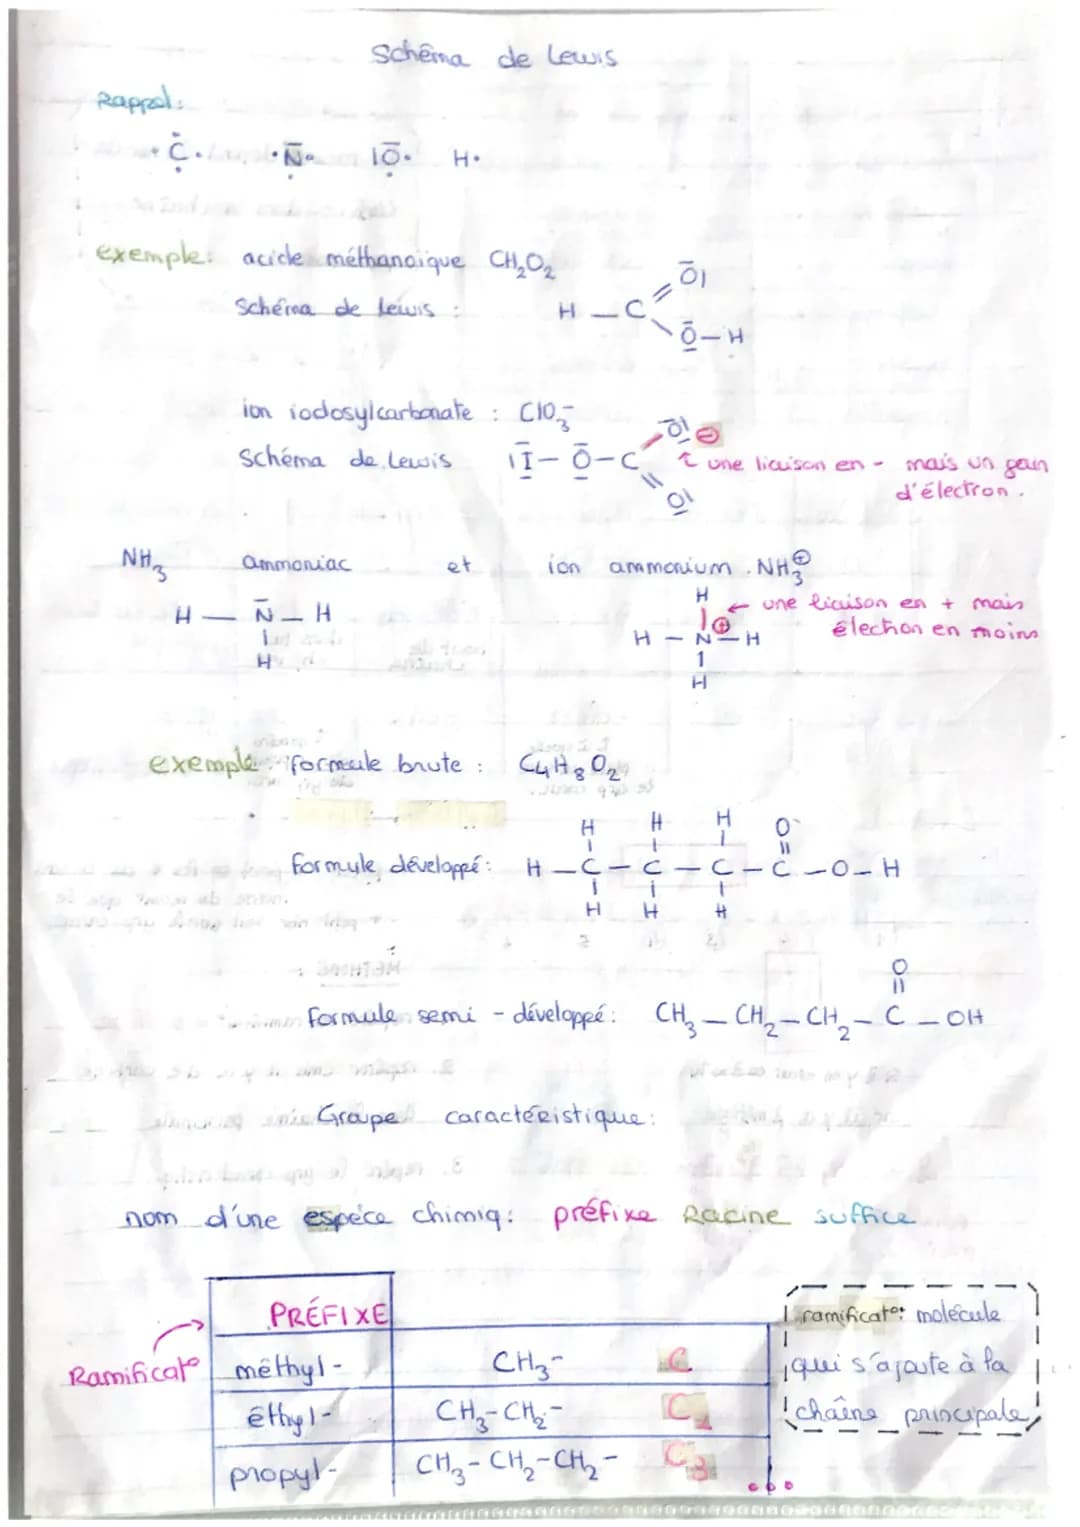 Schéma de Lewis
Rappel:
C N O H
exemple: acide méthanoïque CH2O2
Schéma de lewis : H – C O
O – H
ion iodosylcarbonate : CIO3-
Schéma de Lewis I – O – C O ⊖ une liaison en - mais un gain
O d'électron.
NH3 ammoniac et ion ammonium NH3⊕
H ← une liaison en + mais
H – N – H H – N⊕ – H électron en moins
H H
exemple: formule brute : C4H8O2
H H H O
formule développé: H – C – C – C – C – O – H
H H H
O
Formule semi - développé: CH3 – CH2 – CH2 – C – OH
Groupe caractéristique:
nom d'une espèce chimiq: préfixe Racine suffice
PRÉFIXE
Ramificat° méthyl - CH3- C
éthyl - CH3-CH2- C2
propyl - CH3-CH2-CH2- C3
...
ramificat°: molécule
qui s'ajoute à la
chaîne principale